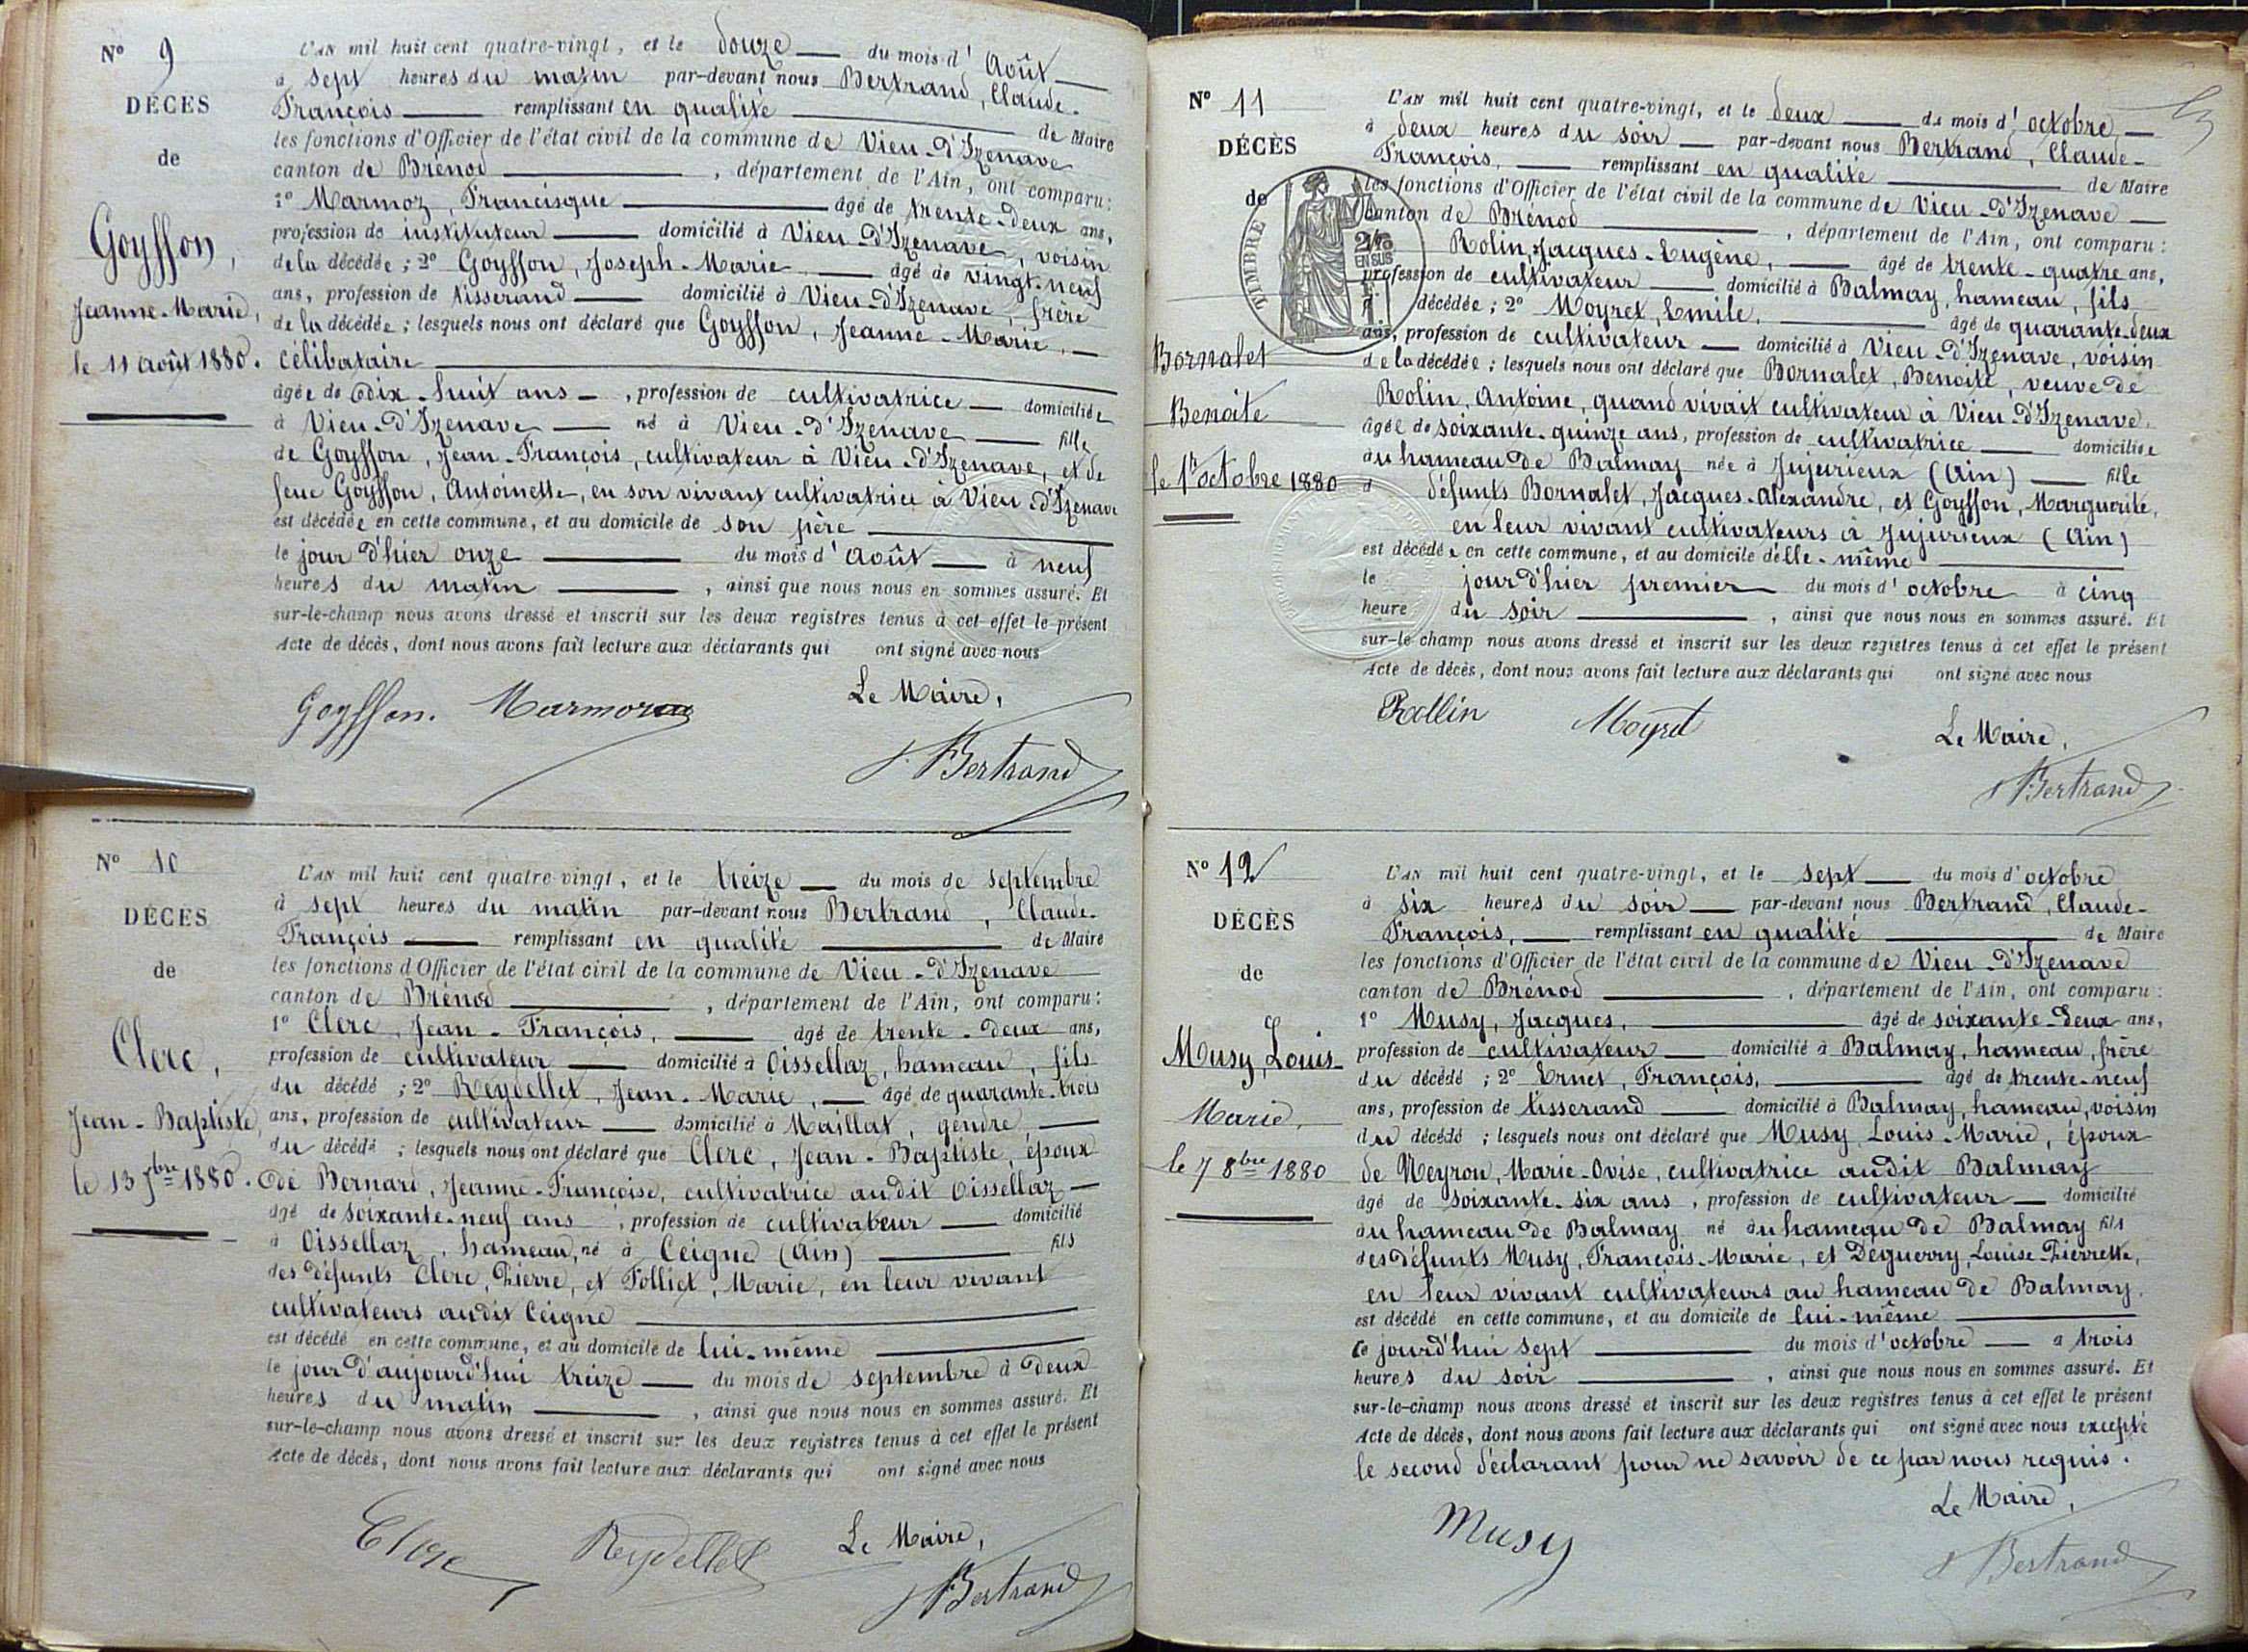 N° 9
DÉCÈS
de
Goyffon,
Jeanne-Marie,
le 11 Août 1880.
L'AN mil huit cent quatre-vingt, et le douze du mois d'Août
à sept heures du matin par-devant nous Bertrand, Claude-
François remplissant en qualité de Maire
les fonctions d'Officier de l'état civil de la commune de Vieu-d'Izenave
canton de Brénod, département de l'Ain, ont comparu:
1° Marmoz, Francisque âgé de trente-deux ans,
profession de instituteur domicilié à Vieu-d'Izenave, voisin
de la décédée; 2° Goyffon, Joseph-Marie âgé de vingt-neuf
ans, profession de tisserand domicilié à Vieu-d'Izenave, frère
de la décédée; lesquels nous ont déclaré que Goyffon, Jeanne-Marie,
célibataire
âgée de dix-huit ans, profession de cultivatrice domiciliée
à Vieu-d'Izenave né à Vieu-d'Izenave fille
de Goyffon, Jean-François, cultivateur à Vieu-d'Izenave, et de
feue Goyffon, Antoinette, en son vivant cultivatrice à Vieu-d'Izenave
est décédée en cette commune, et au domicile de son père
le jour d'hier onze du mois d'Août à neuf
heures du matin, ainsi que nous nous en sommes assuré. Et
sur-le-champ nous avons dressé et inscrit sur les deux registres tenus à cet effet le présent
Acte de décès, dont nous avons fait lecture aux déclarants qui ont signé avec nous
Le Maire,
Goyffon. Marmoz
Bertrand
N° 10
DÉCÈS
de
Clerc,
Jean-Baptiste,
le 13 7bre 1880.
L'AN mil huit cent quatre-vingt, et le treize du mois de septembre
à sept heures du matin par-devant nous Bertrand, Claude-
François remplissant en qualité de Maire
les fonctions d'Officier de l'état civil de la commune de Vieu-d'Izenave
canton de Brénod, département de l'Ain, ont comparu:
1° Clerc, Jean-François, âgé de trente-deux ans,
profession de cultivateur domicilié à Oissellaz, hameau, fils
du décédé; 2° Reydellet, Jean-Marie, âgé de quarante-trois
ans, profession de cultivateur domicilié à Maillat, gendre,
du décédé; lesquels nous ont déclaré que Clerc, Jean-Baptiste, époux
de Bernard, Jeanne-Françoise, cultivatrice audit Oissellaz
âgé de soixante-neuf ans, profession de cultivateur domicilié
à Oissellaz, hameau, né à Ceigne (Ain) fils
des défunts Clerc, Pierre, et Folliet, Marie, en leur vivant
cultivateurs audit Ceigne
est décédé en cette commune, et au domicile de lui-même
le jour d'aujourd'hui treize du mois de septembre à deux
heures du matin, ainsi que nous nous en sommes assuré. Et
sur-le-champ nous avons dressé et inscrit sur les deux registres tenus à cet effet le présent
Acte de décès, dont nous avons fait lecture aux déclarants qui ont signé avec nous
Clerc Reydellet Le Maire,
Bertrand
N° 11
DÉCÈS
de
TIMBRE
2/10
EN SUS
Bornalet
Benoite
le 1r octobre 1880
L'AN mil huit cent quatre-vingt, et le deux du mois d'octobre
à deux heures du soir par-devant nous Bertrand, Claude-
François, remplissant en qualité de Maire
les fonctions d'Officier de l'état civil de la commune de Vieu-d'Izenave
canton de Brénod, département de l'Ain, ont comparu:
Rolin, Jacques-Eugène, âgé de trente-quatre ans,
profession de cultivateur domicilié à Balmay, hameau, fils
décédée; 2° Moyret, Emile, âgé de quarante-deux
ans, profession de cultivateur domicilié à Vieu-d'Izenave, voisin
de la décédée; lesquels nous ont déclaré que Bornalet, Benoite, veuve de
Rolin, Antoine, quand vivait cultivateur à Vieu-d'Izenave,
âgée de soixante-quinze ans, profession de cultivatrice domiciliée
au hameau de Balmay née à Jujurieux (Ain) fille
d défunts Bornalet, Jacques-Alexandre, et Goyffon, Marguerite,
en leur vivant cultivateurs à Jujurieux (Ain)
est décédée en cette commune, et au domicile d'elle-même
le jour d'hier premier du mois d'octobre à cinq
heure du soir, ainsi que nous nous en sommes assuré. Et
sur-le champ nous avons dressé et inscrit sur les deux registres tenus à cet effet le présent
Acte de décès, dont nous avons fait lecture aux déclarants qui ont signé avec nous
Rollin Moyret Le Maire,
Bertrand
N° 12
DÉCÈS
de
Musy, Louis-
Marie,
le 7 8bre 1880
L'AN mil huit cent quatre-vingt, et le sept du mois d'octobre
à six heures du soir par-devant nous Bertrand, Claude-
François, remplissant en qualité de Maire
les fonctions d'Officier de l'état civil de la commune de Vieu-d'Izenave
canton de Brénod, département de l'Ain, ont comparu:
1° Musy, Jacques, âgé de soixante-deux ans,
profession de cultivateur domicilié à Balmay, hameau, frère
du décédé; 2° Ernet, François, âgé de trente-neuf
ans, profession de tisserand domicilié à Balmay, hameau, voisin
du décédé; lesquels nous ont déclaré que Musy, Louis-Marie, époux
de Neyrou, Marie-Ovise, cultivatrice audit Balmay
âgé de soixante-six ans, profession de cultivateur domicilié
au hameau de Balmay né au hameau de Balmay fils
des défunts Musy, François-Marie, et Déguerry, Louise-Pierrette,
en leur vivant cultivateurs au hameau de Balmay,
est décédé en cette commune, et au domicile de lui-même
ce jourd'hui sept du mois d'octobre à trois
heures du soir, ainsi que nous nous en sommes assuré. Et
sur-le-champ nous avons dressé et inscrit sur les deux registres tenus à cet effet le présent
Acte de décès, dont nous avons fait lecture aux déclarants qui ont signé avec nous excepté
le second déclarant pour ne savoir de ce par nous requis.
Le Maire,
Musy
Bertrand